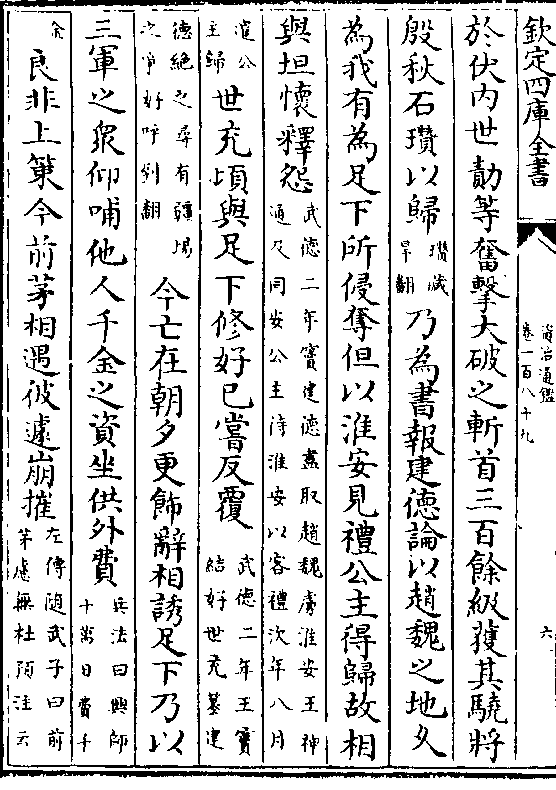 欽定四庫全書
資治通鑑
卷一百八十九
六
於伏内世勣等奮擊大破之斬首三百餘級獲其驍將
殷秋石瓚以歸瓚藏旱翻乃為書報建德論以趙魏之地乆
為我有為足下所侵奪但以淮安見禮公主得歸故相
與坦懷釋怨武德二年竇建德盡取趙魏虜淮安王神通及同安公主待淮安以客禮次年八月
遣公主歸世充頃與足下修好已嘗反覆武德二年王竇結好世充篡建
德絶之尋有疆埸之争好呼到翻今亡在朝夕更飾辭相誘足下乃以
三軍之衆仰哺他人千金之資坐供外費兵法曰興師十萬日費千
金良非上策今前茅相遇彼遽崩摧左傳隨武子曰前茅慮無杜預注云